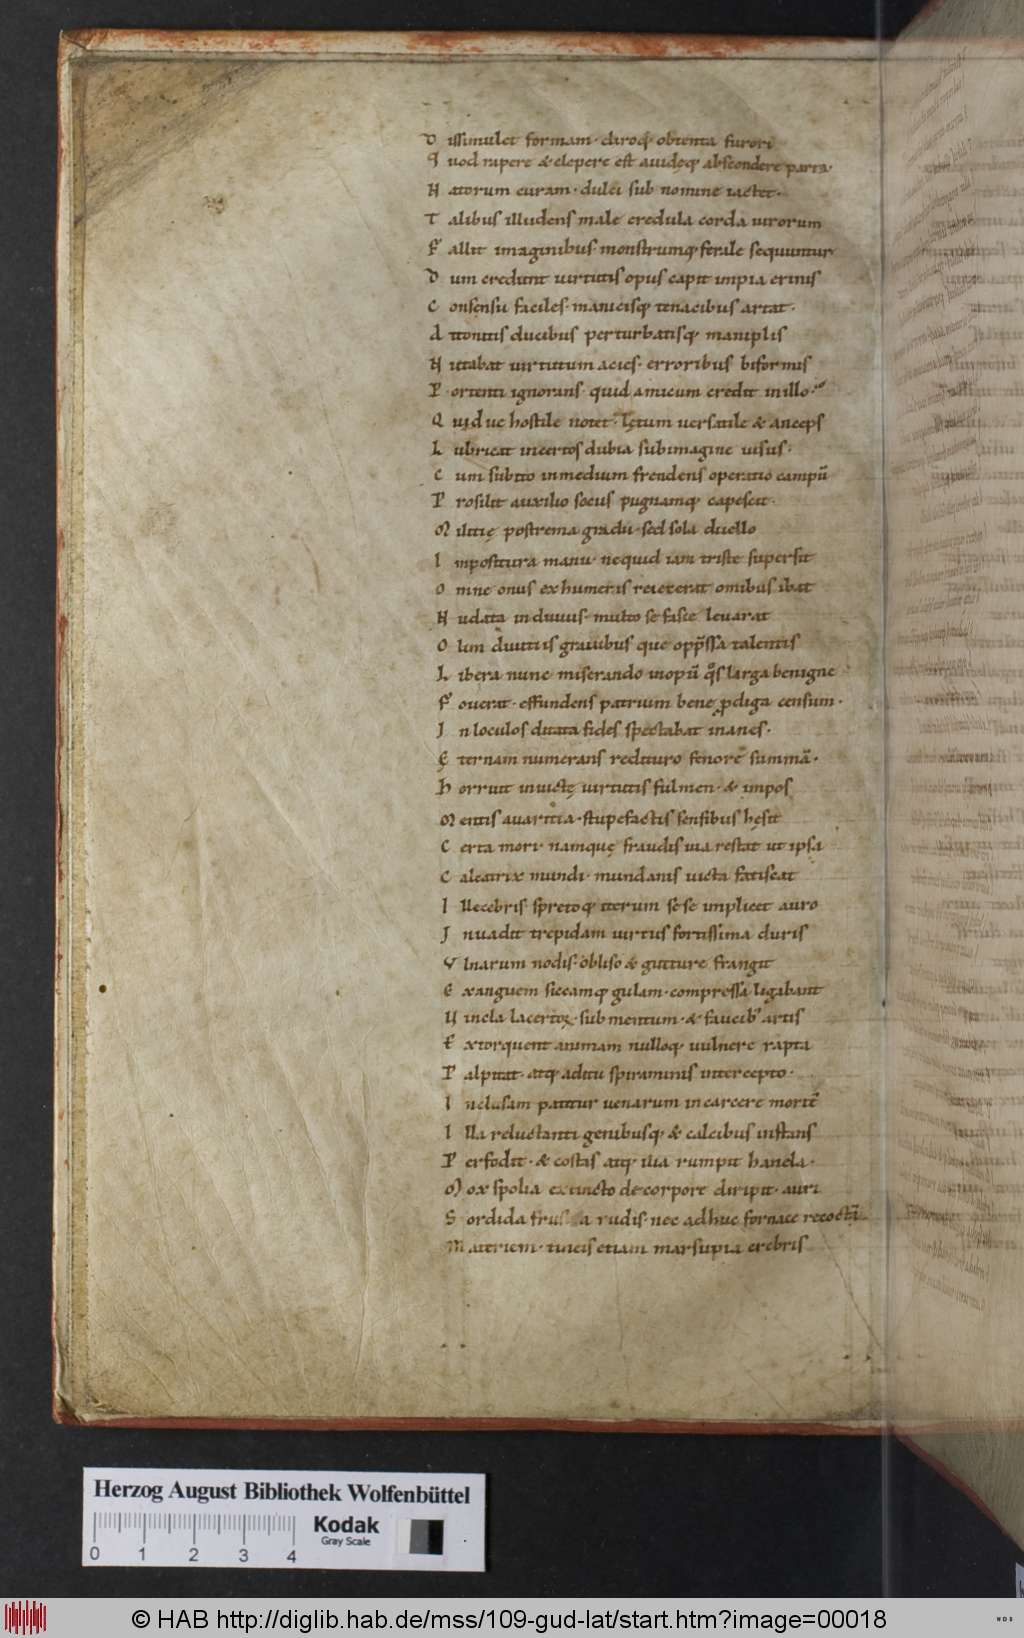 D issimulet formam· diroq; obtenta furori
Q uod rapere & clepere est auidęq; abscondere parta·
N atorum curam· dulci sub nomine iactet·
T alibus illudens male credula corda uirorum
F allit imaginibus· monstrumq; ferale sequuntur
D um credunt uirtutis opus capit impia erinis
C onsensu faciles· manicisq; tenacibus artat·
A ttonitis ducibus perturbatisq; maniplis
N utabat uirtutum acies· erroribus biformis
P ortenti ignorans· quid amicum credit in illo·
Q uid ue hostile notet· lętum uersatile & anceps
L ubricat incertos dubia sub imagine uisus·
C um subito in medium frendens operatio campū
P rosilit auxilio socus pugnamq; capescit·
M ilitię postrema gradu· sed sola duello
I npositura manu· ne quid iam triste supersit
O mne onus ex humeris reiecerat omibus ibat
N udata induuiis· multo se fasce leuarat
O lim diuitiis grauibus que opp̄ssa talentis
L ibera nunc miserando inopū q̊s larga benigne
F ouerat· effundens patrium bene p̱diga censum·
I n loculos ditata fides spectabat inanes·
Ę ternam numerans redituro fenore summā·
H orruit inuictę uirtutis fulmen· & impos
M entis auaritia· stupefactis sensibus hęsit
C erta mori· namquę fraudis uia restat ut ipsa
C alcatrix mundi· mundanis uicta fatiscat
I llecebris spretoq; iterum sese implicet auro
I nuadit trepidam uirtus fortissima duris
V lnarum nodis· obliso & gutture frangit
E xanguem siccamq; gulam· compressa ligabant
U incla lacertoꝝ· sub mentum· & faucib; artis
E xtorquent animam nulloq; uulnere rapta
P alpitat· atq; aditu spiraminis intercepto·
I nclusam patitur uenarum in carcere mortē
I lla reluctanti genibusq; & calcibus instans
P erfodit· & costas atq; ilia rumpit hanela·
M ox spolia extincto de corpore diripit· auri
S ordida frusta rudis· nec adhuc fornace recoctā
M ateriem· tineis etiam marsupia crebris
Herzog August Bibliothek Wolfenbüttel
Kodak
Gray Scale
0 1 2 3 4
© HAB http://diglib.hab.de/mss/109-gud-lat/start.htm?image=00018